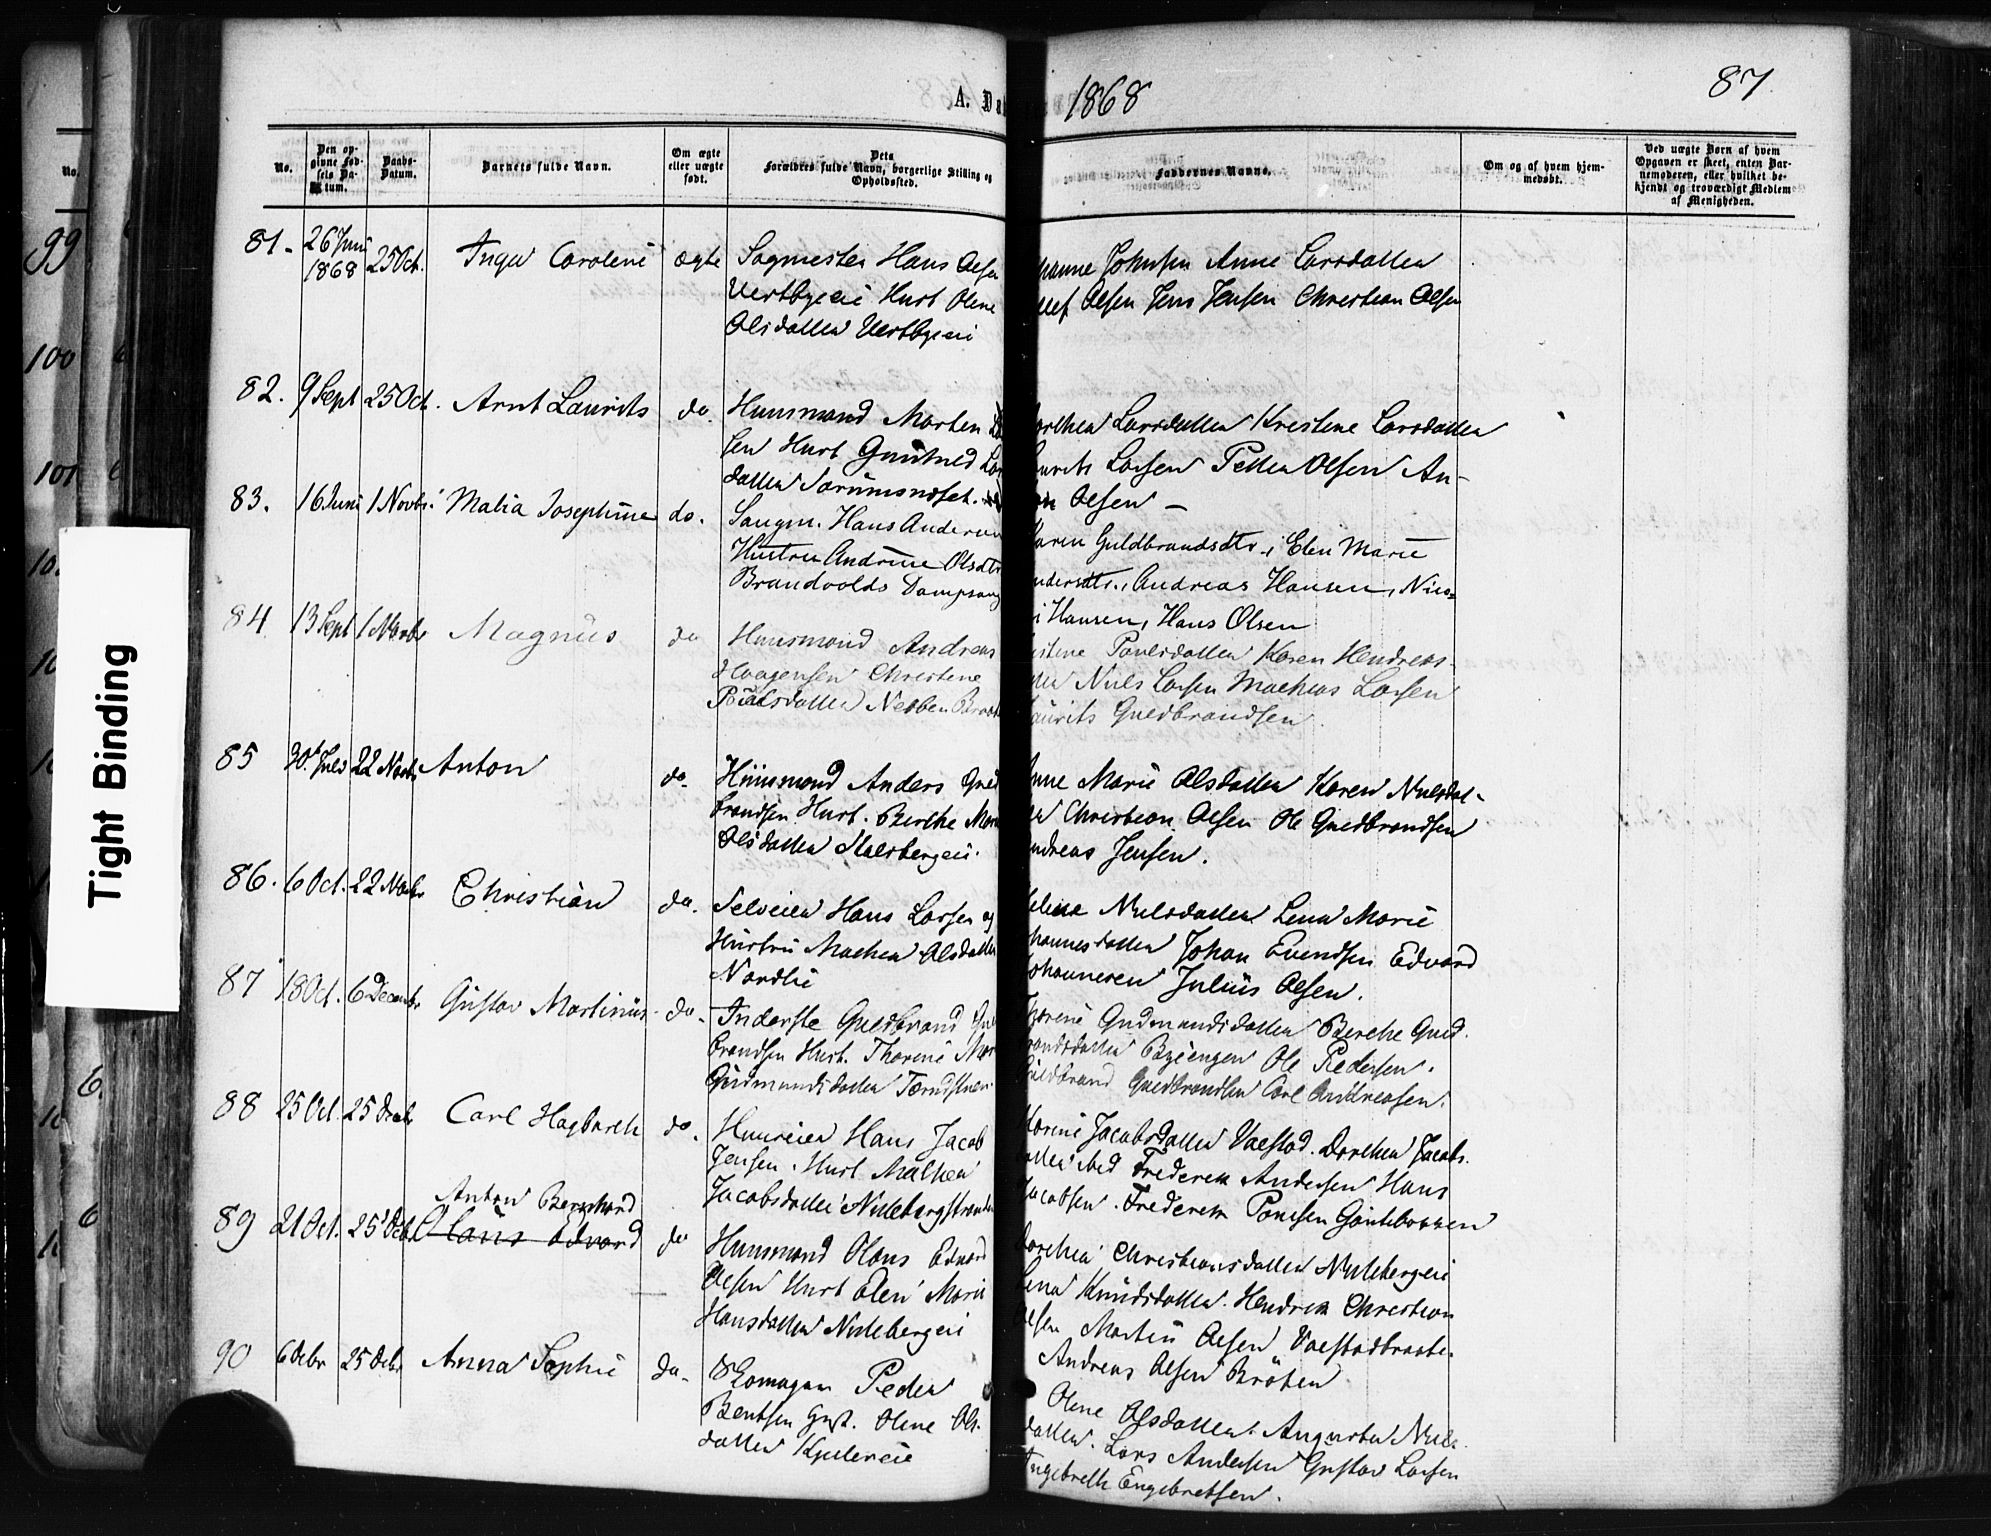 A. Da
1868
87.
No.
Den opgivne Fødsels Datum.
Daabs-Datum.
Barnets fulde Navn.
Om ægte eller uægte født.
Dets Forældres fulde Navn, borgerlige Stilling og Opholdssted.
Faddernes Navne.
Om og af hvem hjemmedøbt.
Ved uægte Børn af hvem Opgaven er skeet, enten Barnemoderen, eller hvilket bekjendt og troværdigt Medlem af Menigheden.
99
100
101
Tight Binding
81. 26 Juni 1868 25 Oct. Inga Caroline ægte Sagmester Hans Olsen
Vestbyeie Hust Oline
Olsdatter Vestbyeie
Johnsen Anne Larsdatter
Olsen Jens Jensen Christian Olsen
82. 9 Sept 25 Oct. Arnt Laurits do. Huusmand Morten
sen Hust Lars
datter
Larsdatter Kristine Larsdatter
Laurits Larsen Petter Olsen An-
Olsen —
83. 16 Juni 1 Novbr. Malia Josephine do. Saugm. Hans Andersen
Hustru Andrine Olsdtr
Brandvolds Dampsaug
Karen Guldbrandsdtr., Elen Marie
Andersdtr., Andreas Hansen, Nico-
i Hansen, Hans Olsen
84 13 Sept 1 Novbr Magnus do Huusmand Andreas
Haagensen Christine
Povelsdatter
Povelsdatter Karen Hendriks-
Niels Larsen Mathias Larsen
Laurits Guldbrandsen
85 30 Juli 22 Novbr Anton do. Huusmand Anders Guld
brandsen Hust. Berthe Marie
Olsdatter
Anne Marie Olsdatter Karen Nielsdat-
Christian Olsen Ole Guldbrandsen
Andreas Jensen.
86. 6 Oct. 22 Novbr Christian do. Selveier Hans Larsen og
Hustru Mathea Olsdatter
Nordlie
Nielsdatter Lena Marie
Johannesdatter Johan Evendsen Edvard
Johannesen Julius Olsen.
87 18 Oct. 6 Decembr Gustav Martinus do. Inderste Guldbrand Guld
brandsen Hust. Thorine Mar
Gudmundsdatter
Thorine Gudmundsdatter Berthe Guld-
brandsdatter Byeengen Ole Pedersen.
Guldbrand Guldbrandsen Carl Andreasen.
88 25 Oct. 25 Decbr Carl Hagbarth do. Huuseier Hans Jacob
Jensen. Hust Mathea
Jacobsdatter
Karine Jacobsdatter Vaestad. Dorthea Jacobs-
datter ibid Frederik Andersen Hans
Jacobsen. Frederik Poulsen
89 21 Oct. 25 Decbr Anton Bernhard
Olaus Edvard do Huusmand Olaus Edvard
Olsen Hust Elen Marie
Hansdatter Nielebergeie
Dorthea Christiansdatter Nielebergeie
Lena Knudsdatter. Hendrik Christian
Olsen Martin Olsen Vaestadbraate.
Andreas Olsen Bröten
90 6 Octbr 25 Decbr Anna Sophie do. Skomager Peder
Bentsen Oline Ols-
datter
Oline Olsdatter. Augusta Niels-
datter. Lars Andersen Gustav Larsen
Engebreth Engebretsen.